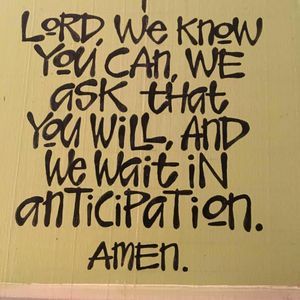 Lord, we know
you can, we
ask that
you will, and
we wait in
anticipation.
Amen.